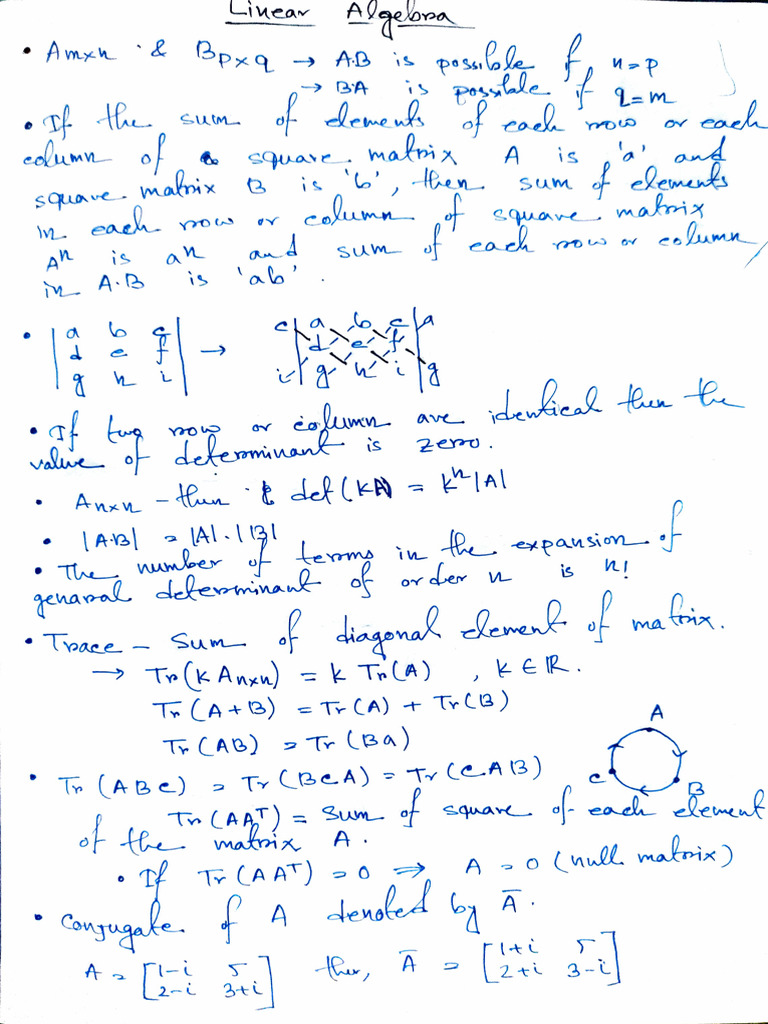 Linear Algebra
• Am×n & Bp×q → A.B is possible if n=p
→ B.A is possible if q=m
• If the sum of elements of each row or each
column of a square matrix A is 'a' and
square matrix B is 'b', then sum of elements
in each row or column of square matrix
Aⁿ is aⁿ and sum of each row or column
in A.B is 'ab'.
• |a b c| → c|a b c|a
|d e f| |d e f|
|g h i| i|g h i|g
• If two row or column are identical then the
value of determinant is zero.
• An×n – then det(KA) = Kⁿ|A|
• |A.B| = |A|.|B|
• The number of terms in the expansion of
genaral determinant of order n is n!
• Trace – Sum of diagonal element of matrix.
→ Tr(K An×n) = k Tr(A) , K ∈ ℝ.
Tr(A+B) = Tr(A) + Tr(B)
Tr(AB) = Tr(Ba)
A
B
C
• Tr(ABC) = Tr(BCA) = Tr(CAB)
Tr(AAᵀ) = Sum of square of each element
of the matrix A.
• If Tr(AAᵀ) = 0 ⇒ A = 0 (null matrix)
• Conjugate of A denoted by Ā.
A = [1-i 5 then, Ā = [1+i 5
2-i 3+i] 2+i 3-i]